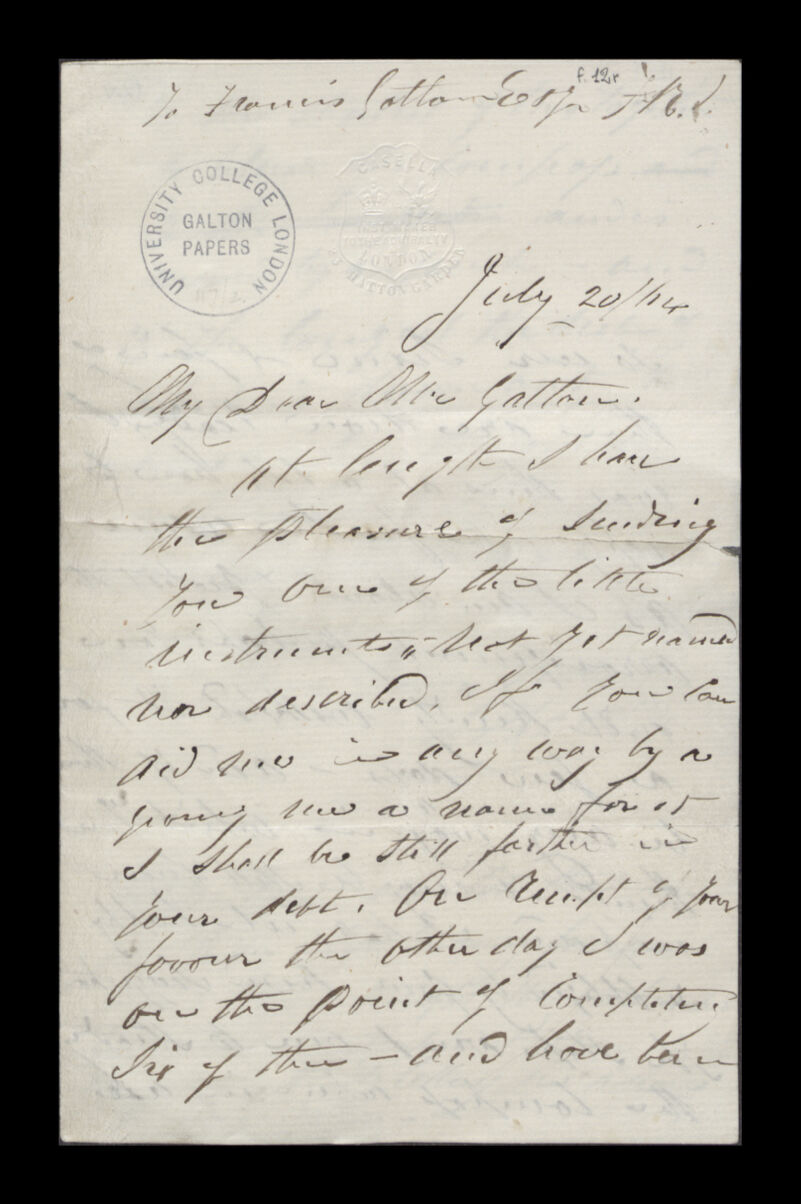 f. 12r
To Francis Galton Esqr F.R.S.
UNIVERSITY COLLEGE LONDON
GALTON
PAPERS
117/2
CASELLA
TO THE ADMIRALTY
LONDON
23 HATTON GARDEN
July 20/64
My Dear Mr Galton.
At length I have
the pleasure of sending
you one of the little
instruments, not yet named
nor described. If you can
aid me in any way by a
giving me a name for it
I shall be still farther in
your debt. On receipt of your
favour the other day I was
on the point of completing
six of them – and have been